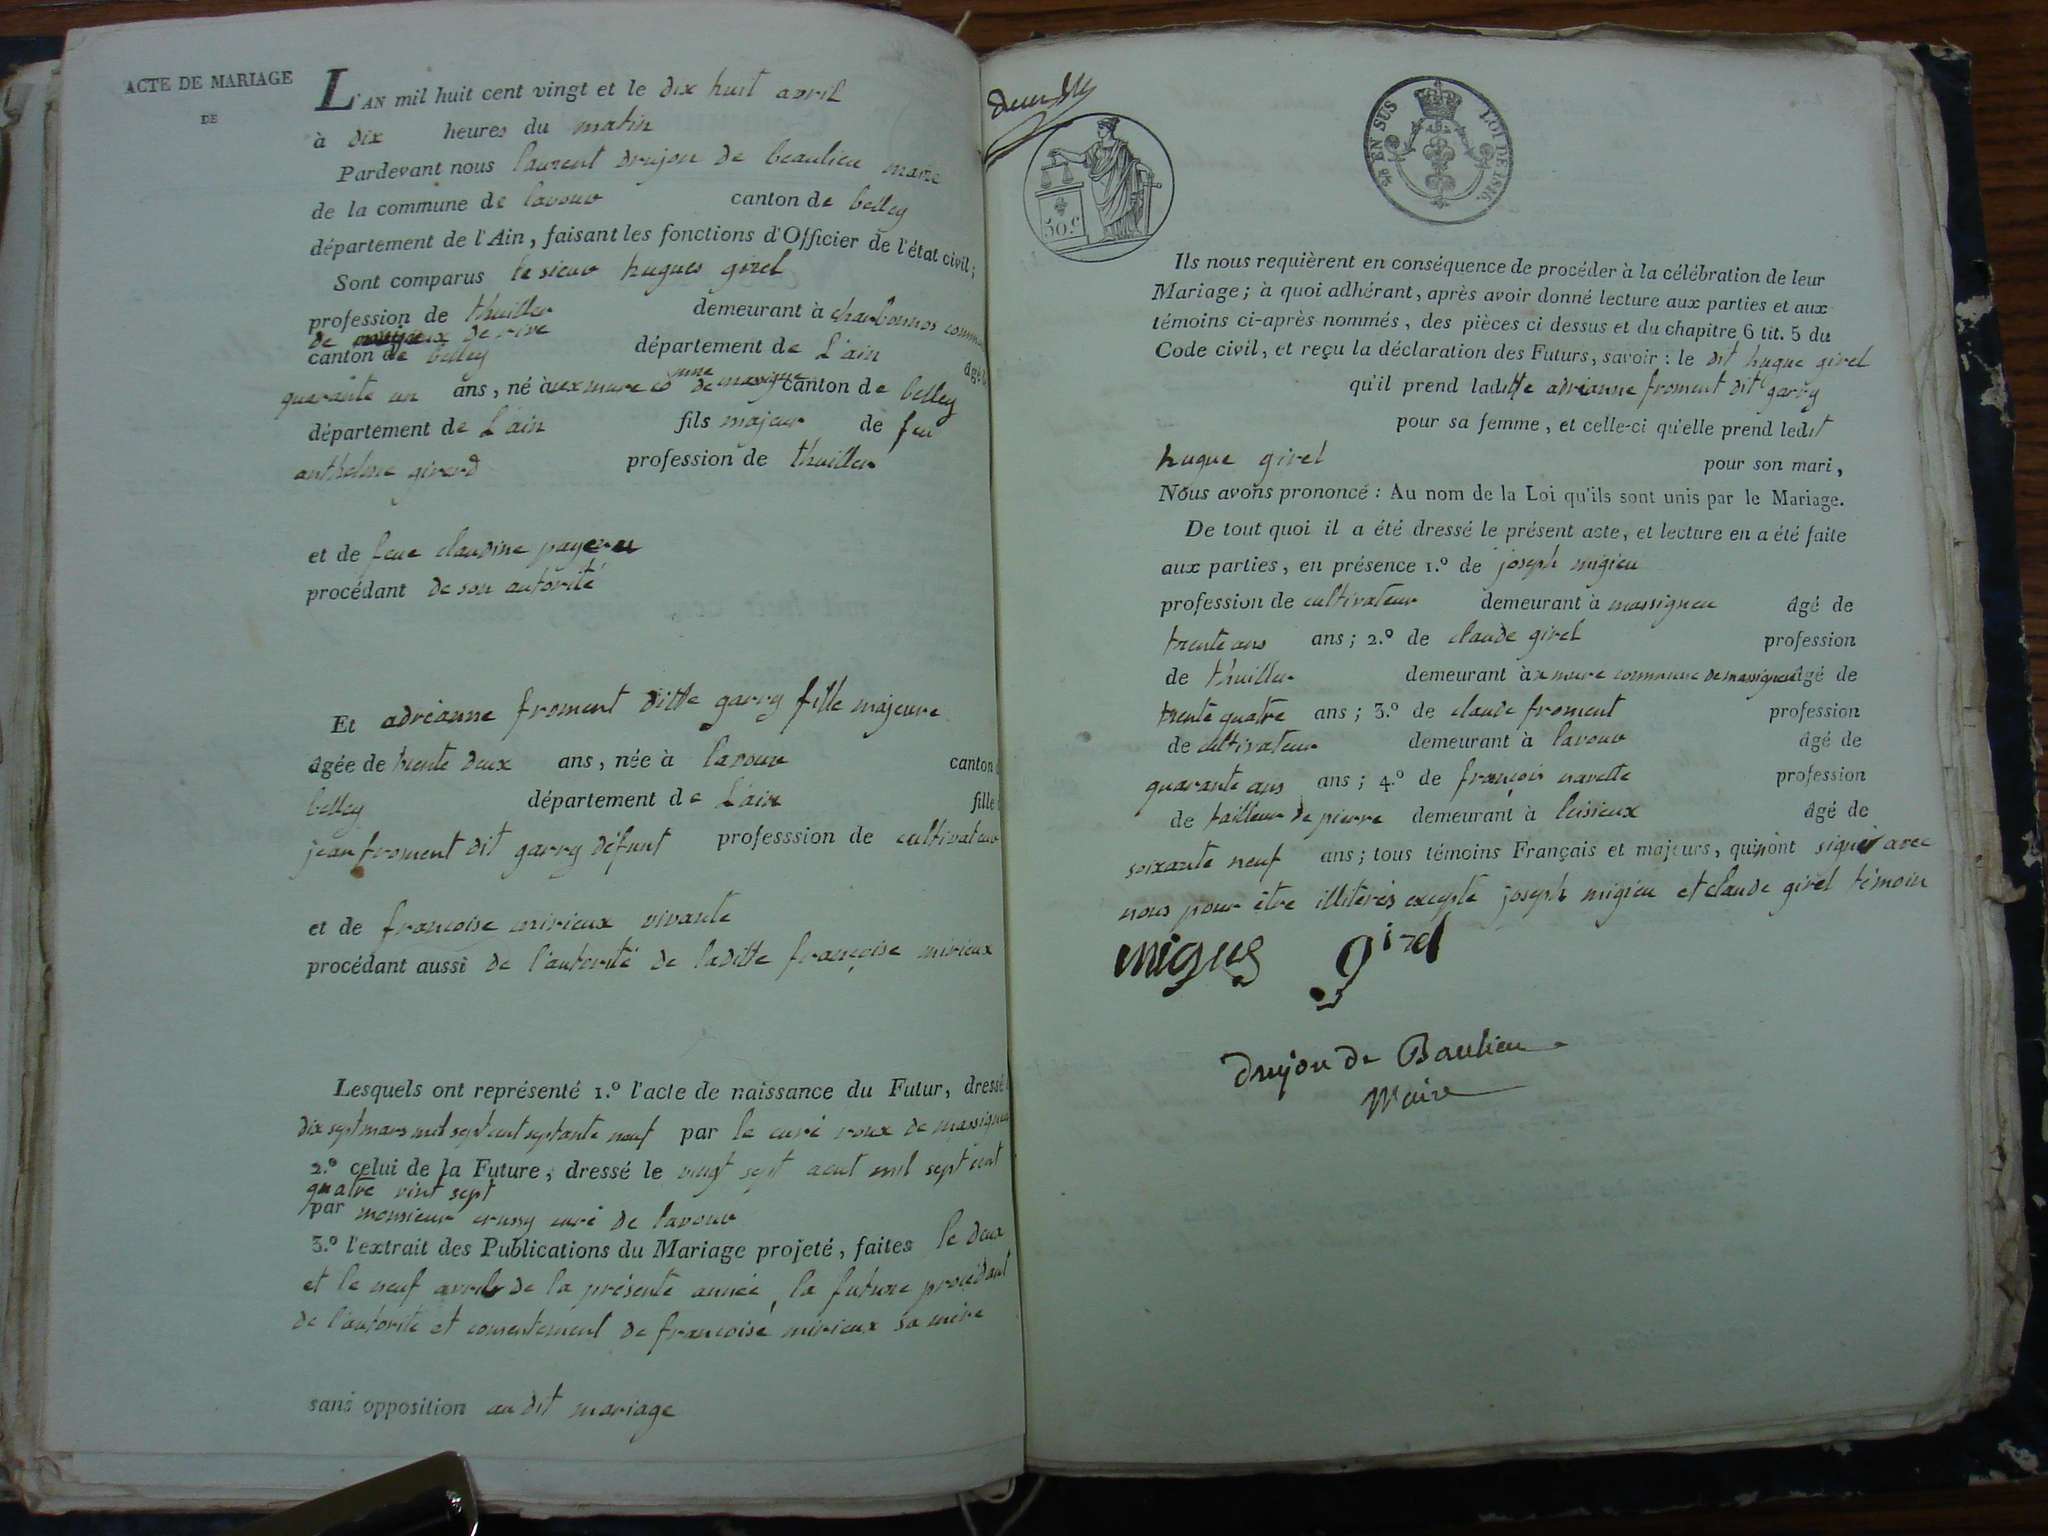 ACTE DE MARIAGE
DE
L'AN mil huit cent vingt et le dix huit avril
à dix heures du matin
Pardevant nous laurent drujon de beaulieu maire
de la commune de lavour canton de belley
département de l'Ain, faisant les fonctions d'Officier de l'état civil;
Sont comparus le sieur hugues girel
profession de thuiller demeurant à charbonnos
de de rive
canton de belley département de L'ain âgé
quarante un ans, né à canton de belley
département de L'ain fils majeur de feu
anthelme girerd profession de thuiller
et de feue claudine
procédant de son autorité
Et adréanne froment ditte garry fille majeure
âgée de trente deux ans, née à lavour canton
belley département de L'ain fille
jean froment dit garry défunt professsion de cultivateur
et de francoise mirieux vivante
procédant aussi de l'autorité de laditte françoise mirieux
Lesquels ont représenté 1.º l'acte de naissance du Futur, dressé
dix sept mars mil sept cent septante neuf par le curé roux de massignieu
2.º celui de la Future, dressé le vingt sept aout mil sept cent
quatre vint sept
par monsieur crussy curé de lavour
3.º l'extrait des Publications du Mariage projeté, faites le deux
et le neuf avril de la présente année, la future procédant
de l'autorité et consentement de francoise mirieux sa mère
sans opposition au dit mariage
50.C
EN SUS LOI DE 1816.
Ils nous requièrent en conséquence de procéder à la célébration de leur
Mariage; à quoi adhérant, après avoir donné lecture aux parties et aux
témoins ci-après nommés, des pièces ci dessus et du chapitre 6 tit. 5 du
Code civil, et reçu la déclaration des Futurs, savoir: le dit hugue girel
qu'il prend laditte adréanne froment dite garry
pour sa femme, et celle-ci qu'elle prend ledit
hugue girel pour son mari,
Nous avons prononcé: Au nom de la Loi qu'ils sont unis par le Mariage.
De tout quoi il a été dressé le présent acte, et lecture en a été faite
aux parties, en présence 1.º de joseph migieu
profession de cultivateur demeurant à massigneu âgé de
trente ans ans; 2.º de claude girel profession
de thuiller demeurant à mure commune de massigneu âgé de
trente quatre ans; 3.º de claude froment profession
de cultivateur demeurant à lavour âgé de
quarante ans ans; 4.º de françois navette profession
de tailleur de pierre demeurant à leisieux âgé de
soixante neuf ans; tous témoins Français et majeurs, qui n'ont signés avec
nous pour être illitérés excepté joseph migieu et claude girel témoin
girel
drujon de Baulieu
Maire